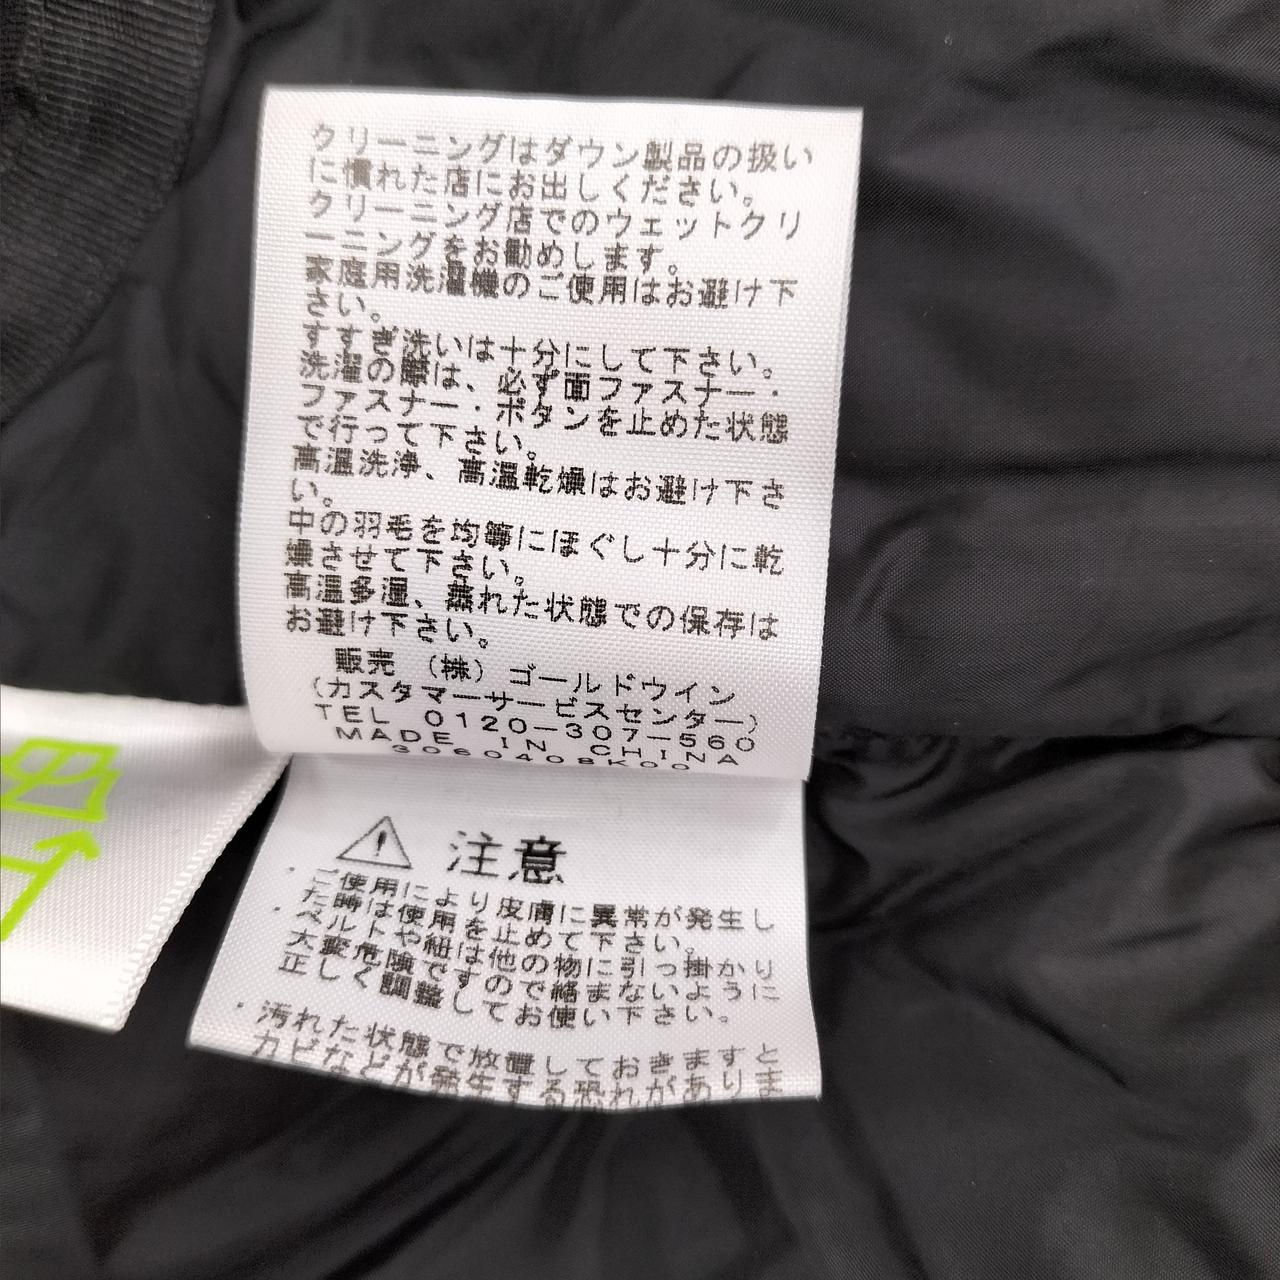 クリーニングはダウン製品の扱い
に慣れた店にお出しください。
クリーニング店でのウェットクリ
ーニングをお勧めします。
家庭用洗濯機のご使用はお避け下
さい。
すすぎ洗いは十分にして下さい。
洗濯の際は、必ず面ファスナー・
ファスナー・ボタンを止めた状態
で行って下さい。
高温洗浄、高温乾燥はお避け下さ
い。
中の羽毛を均等にほぐし十分に乾
燥させて下さい。
高温多湿、蒸れた状態での保存は
お避け下さい。
販売 (株)ゴールドウイン
(カスタマーサービスセンター)
TEL 0120-307-560
MADE IN CHINA
3060408K00
注意
・ご使用により皮膚に異常が発生し
た時は使用を止めて下さい。
・ベルトや紐は他の物に引っ掛かり
大変危険ですので絡まないように
正しく調整してお使い下さい。
・汚れた状態で放置しておきますと
カビなどが発生する恐れがありま